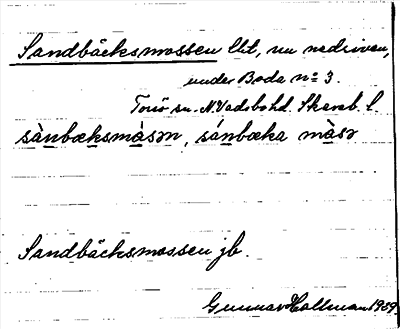 Sandbäcksmossen lht, nu nedriven,
under Boda nº 3.
Torsö sn. N Vadsbohd. Skarab. l.
sànbæksmàsən, sánbæka màsə
Sandbäcksmossen jb.
Gunnar Hallman 1939.